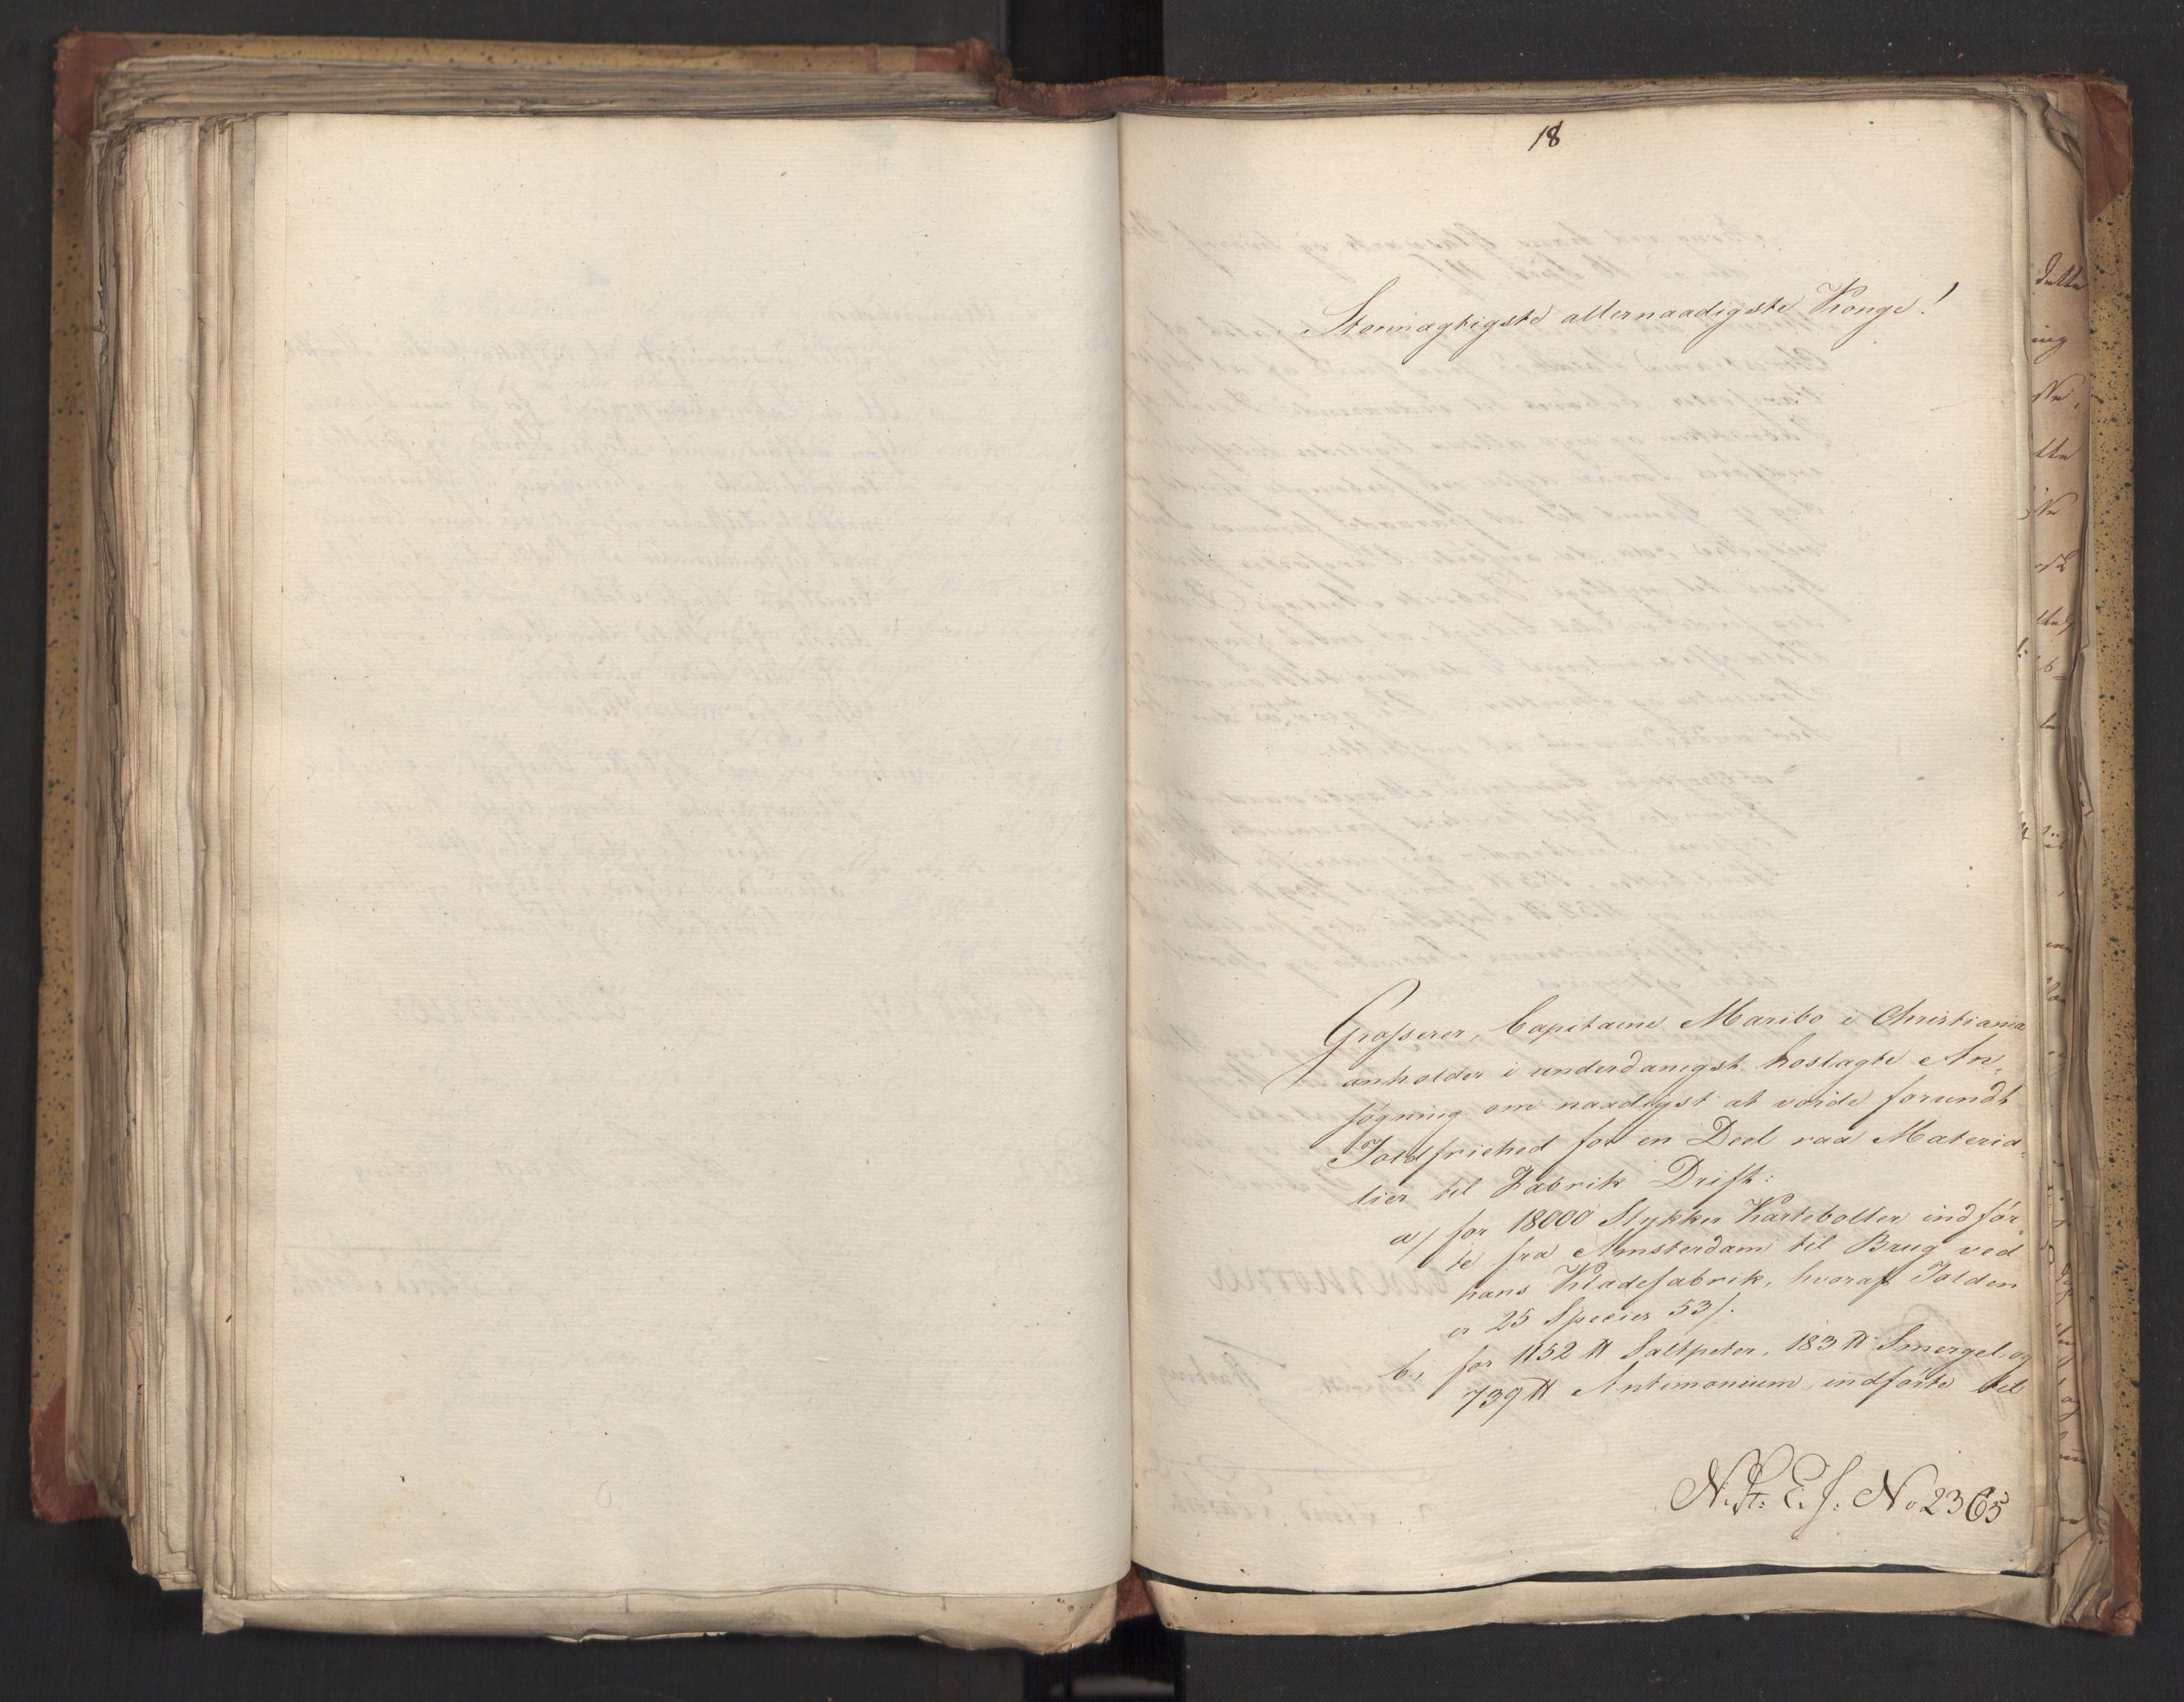 18
Stormægtigste allernaadigste Konge!
Grosserer, Capitaine Maribo i Christiania
anholder i underdanigst hoslagte An„
søgning om naadigst at vorde forundt
Toldfriehed for en Deel raa Materia„
lier til Fabrik Drift:
a) for 18000 Stykker Karteboller indfør„
te fra Amsterdam til Brug ved
hans Klædefabrik, hvoraf Tolden
er 25 Species 53 s.
b., for 1152 ℔ Saltpeter, 183 ℔ Smergel og
739 ℔ Antimonium, indførte til
N. R. E. J. No 2365